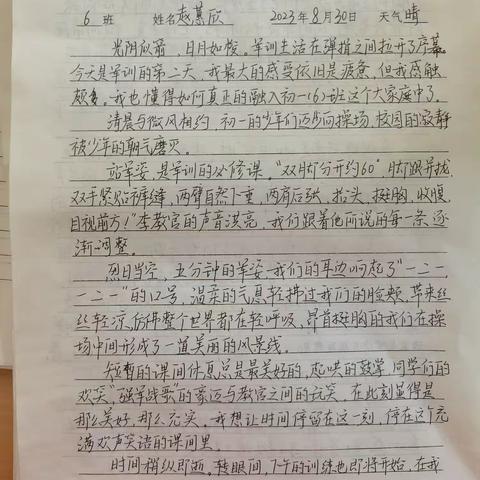 6 班 姓名赵慕欣 2023年8月30日 天气晴
光阴似箭，日月如梭。军训生活在弹指之间拉开了序幕
今天是军训的第二天，我最大的感受依旧是疲惫，但我感触
颇多。我也懂得如何真正的融入初一(6)班这个大家庭中了。
清晨与微风相约，初一的少年们迈步向操场，校园的寂静
被少年的朝气磨灭。
站军姿，是军训的必修课。"双脚分开约60°，脚跟并拢，
双手紧贴裤缝，两臂自然下垂，两肩后张，抬头，挺胸，收腹，
目视前方！"李教官的声音洪亮，我们跟着他所说的每一条逐
渐调整。
烈日当空，五分钟的军姿，我们的耳边响起了"一二一，
一二一"的口号，温柔的气息轻拂过我们的脸颊，带来丝
丝轻凉，仿佛整个世界都在轻呼吸，昂首挺胸的我们在操
场中间形成了一道美丽的风景线。
短暂的课间休息总是最美好的，起哄的鼓掌，同学们的
欢笑，"强军战歌"的豪迈与教官之间的玩笑，在此刻显得是
那么美好，那么充实。我想让时间停留在这一刻，停在这个充
满欢声笑语的课间里。
时间稍纵即逝。转眼间，下午的训练也即将开始，在我